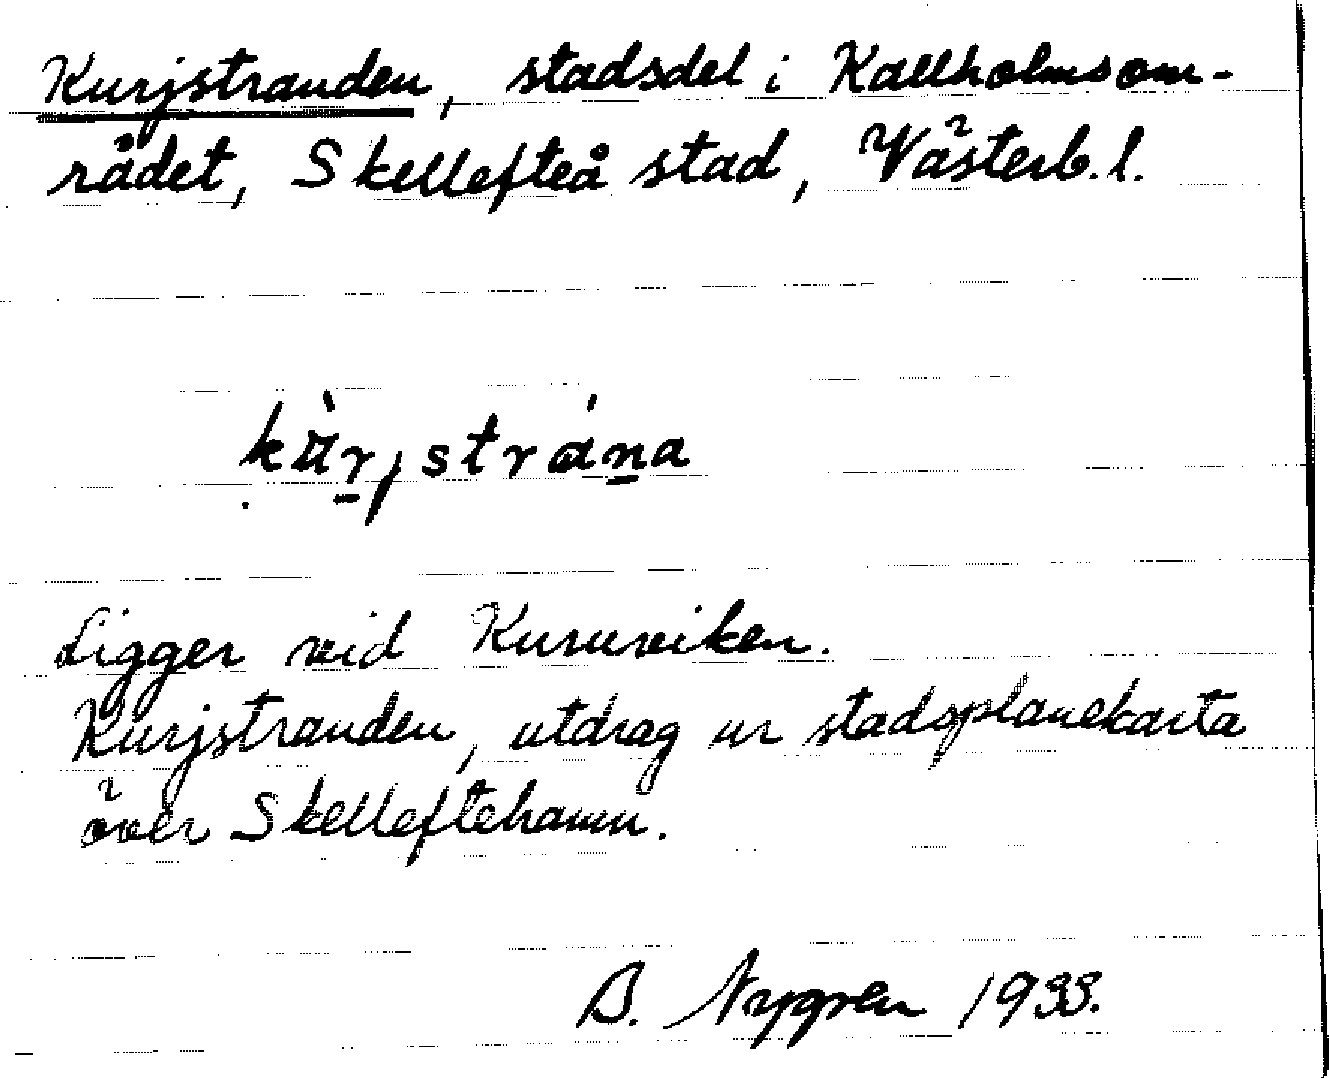 Kurjstranden, stadsdel i Kallholmsom-
rådet, Skellefteå stad, Västerb. l.
Ligger vid Kuruviken.
Kurjstranden, utdrag ur stadsplanekarta
över Skelleftehamn.
B. Nygren 1933.